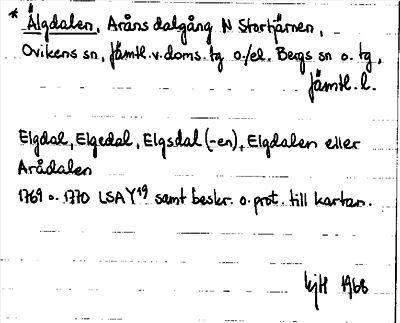 * Älgdalen, Aråns dalgång N Stortjärnen,
Ovikens sn, Jämtl.v.doms.tg o./el. Bergs sn o. tg,
Jämtl. l.
Elgdal, Elgedal, Elgsdal (-en), Elgdalen eller
Arådalen
1769 o. 1770 LSA Y19 samt beskr. o. prot. till kartan.
1968